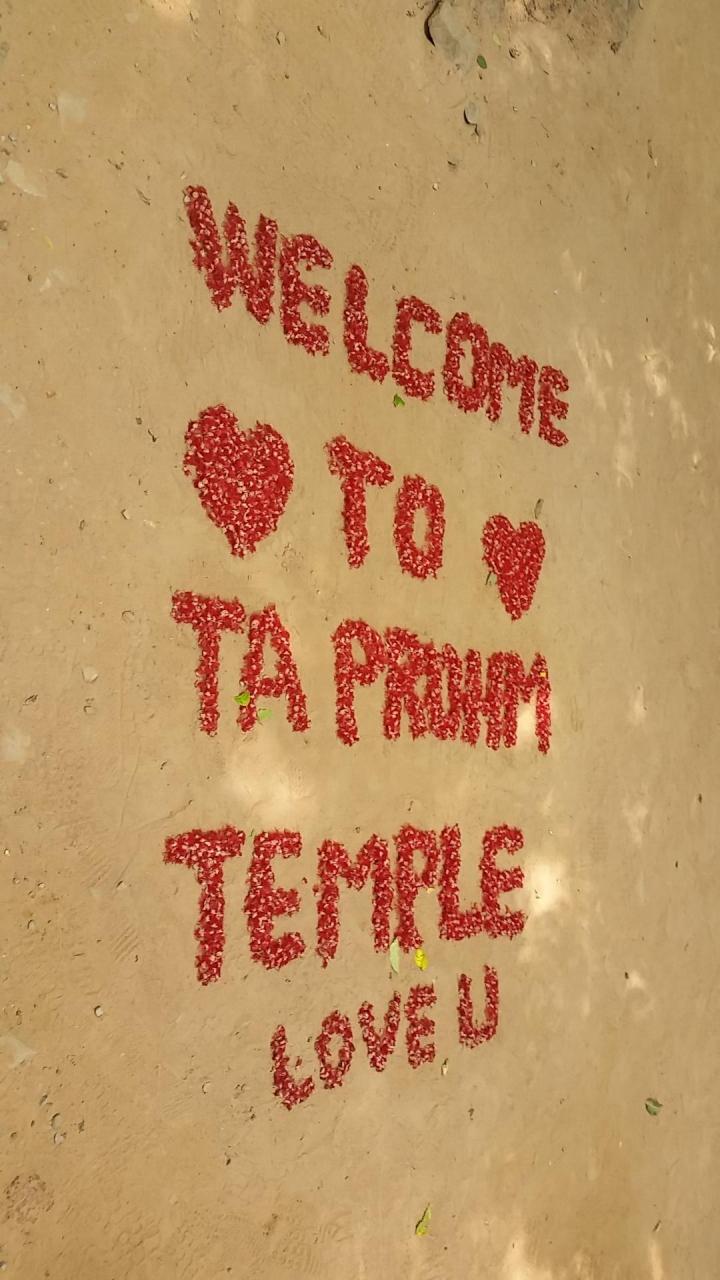 WELCOME
TO
TA PROHM
TEMPLE
LOVE U